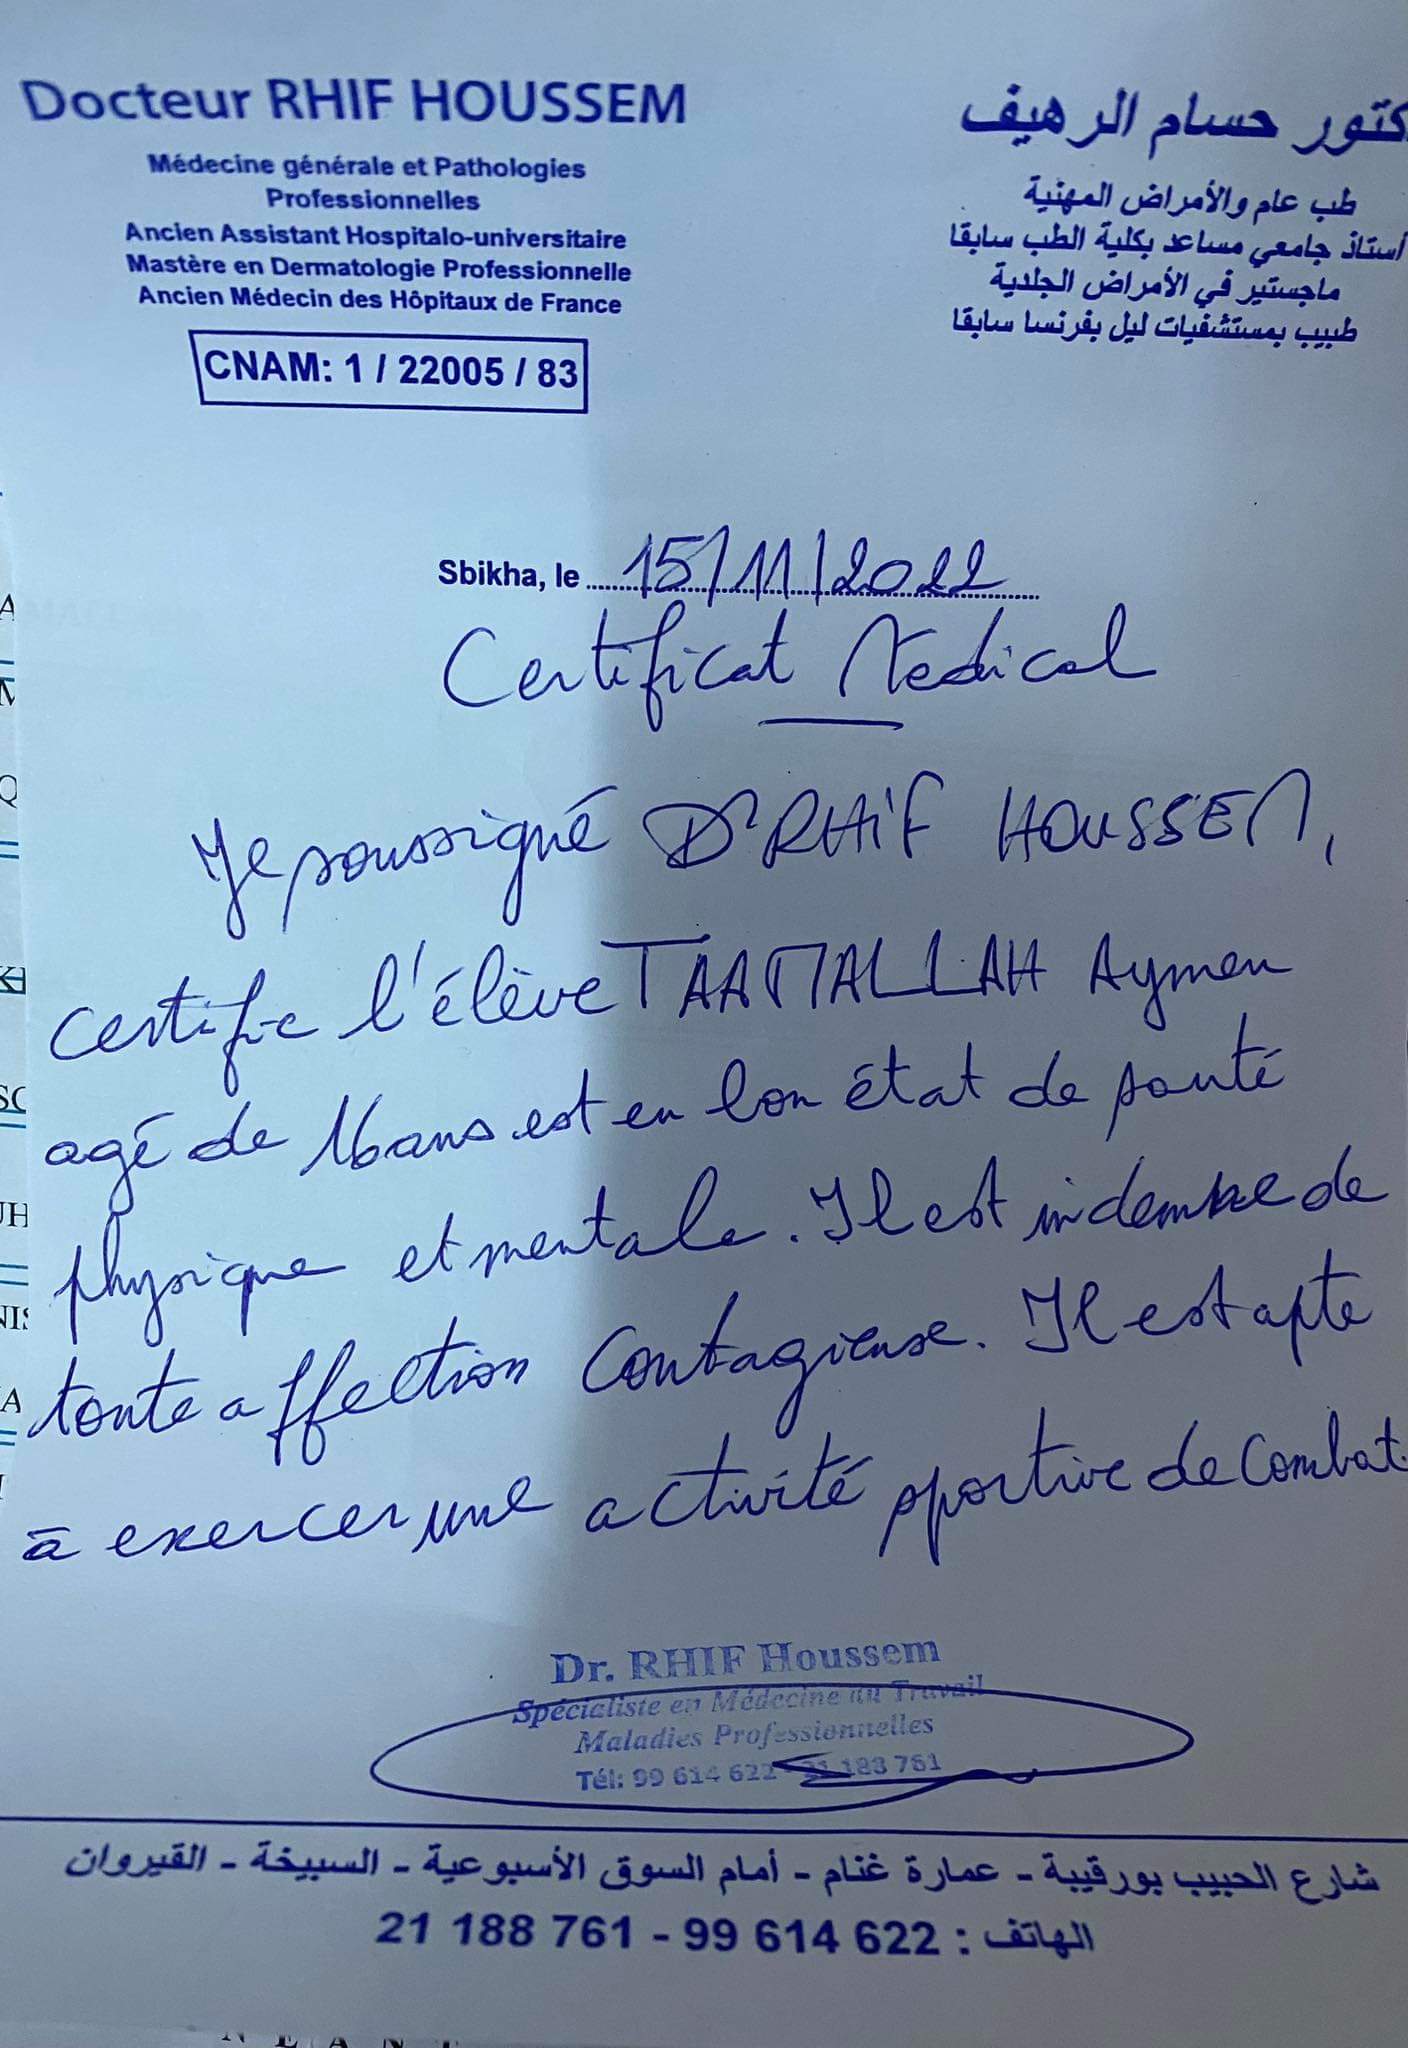 Docteur RHIF HOUSSEM
Médecine générale et Pathologies
Professionnelles
Ancien Assistant Hospitalo-universitaire
Mastère en Dermatologie Professionnelle
Ancien Médecin des Hôpitaux de France
CNAM: 1 / 22005 / 83
كتور حسام الرهيف
طب عام والأمراض المهنية
أستاذ جامعي مساعد بكلية الطب سابقا
ماجستير في الأمراض الجلدية
طبيب بمستشفيات ليل بفرنسا سابقا
Sbikha, le 15/11/2022
Certificat Medical
Je soussigné Dr RHIF HOUSSEM,
certifie l'élève TAAMALLAH Aymen
agé de 16 ans est en bon état de santé
physique et mentale. Il est indemne de
toute affection contagieuse. Il est apte
à exercer une activité sportive de combat.
Dr. RHIF Houssem
Spécialiste en Médecine du Travail
Maladies Professionnelles
Tél: 99 614 622 - 21 188 761
شارع الحبيب بورقيبة - عمارة غنام - أمام السوق الأسبوعية - السبيخة - القيروان
الهاتف : 99 614 622 - 21 188 761